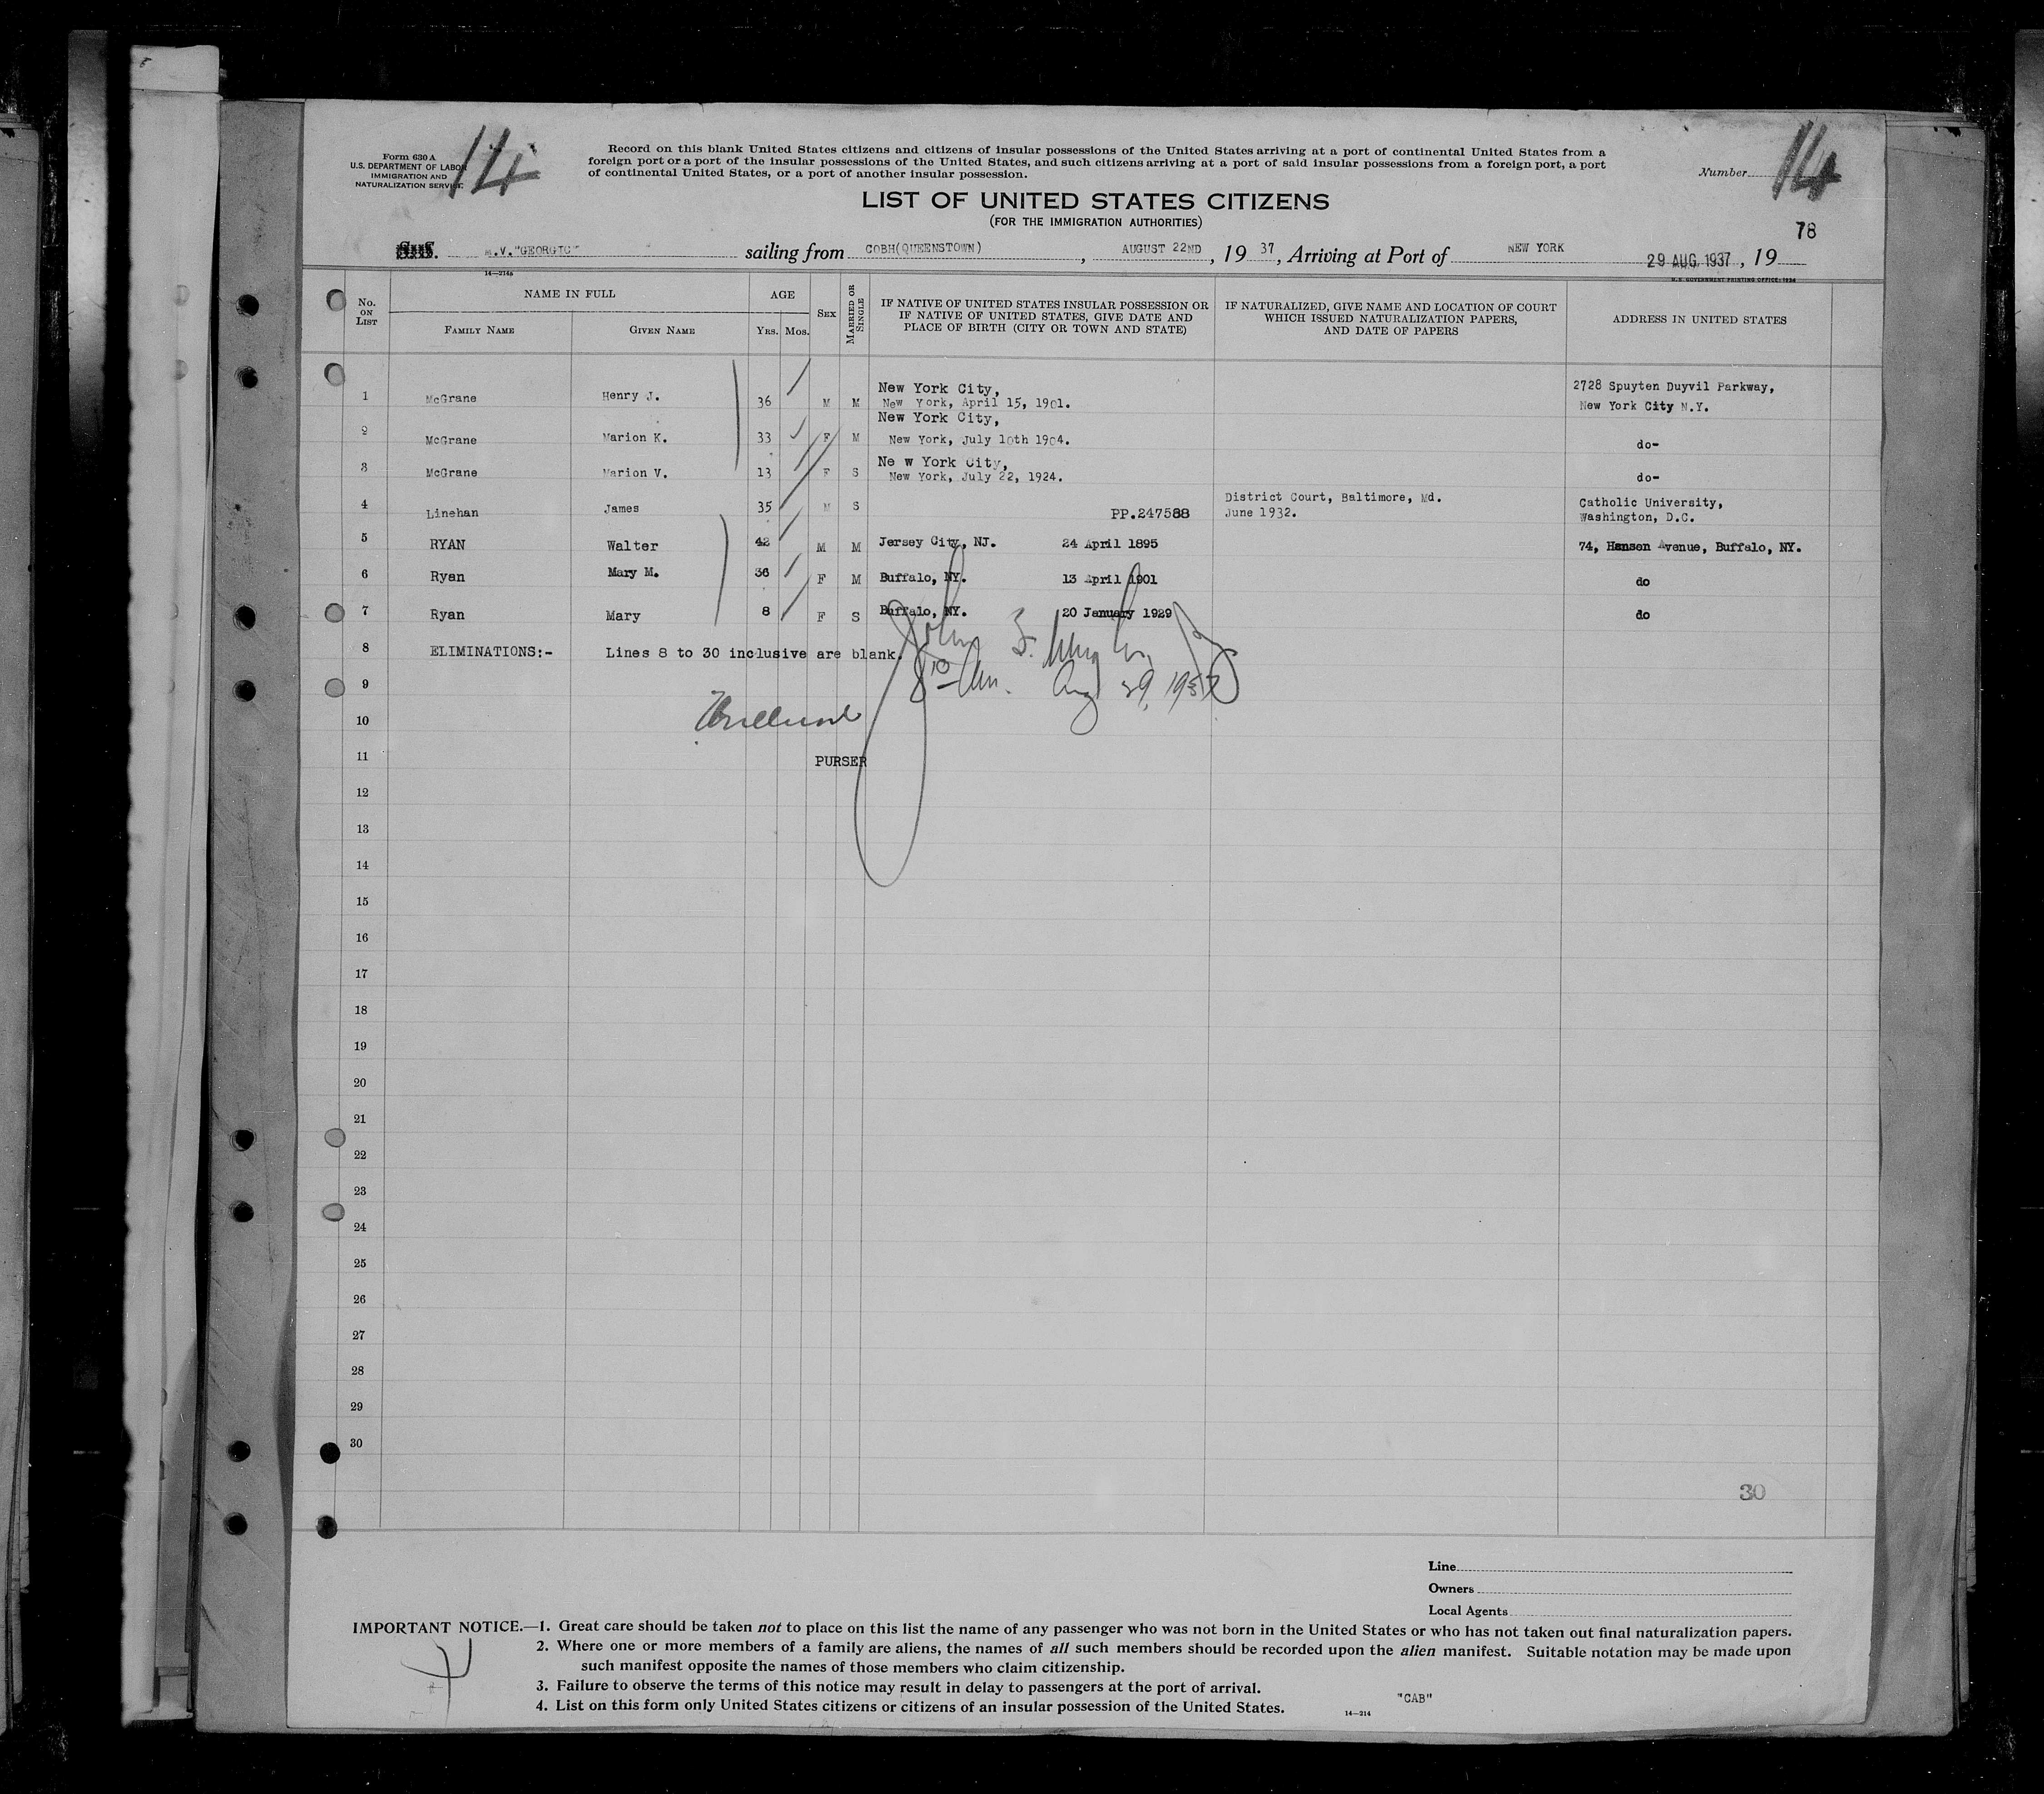 Form 630 A
U.S. DEPARTMENT OF LABOR
IMMIGRATION AND
NATURALIZATION SERVICE
14
Record on this blank United States citizens and citizens of insular possessions of the United States arriving at a port of continental United States from a
foreign port or a port of the insular possessions of the United States, and such citizens arriving at a port of said insular possessions from a foreign port, a port
of continental United States, or a port of another insular possession.
Number 14
LIST OF UNITED STATES CITIZENS
(FOR THE IMMIGRATION AUTHORITIES)
78
M.V. "GEORGIC" sailing from COBH(QUEENSTOWN), AUGUST 22ND, 19 37, Arriving at Port of NEW YORK 29 AUG 1937, 19
14—2146
U.S. GOVERNMENT PRINTING OFFICE: 1936
No. ON LIST
NAME IN FULL
FAMILY NAME
GIVEN NAME
AGE
Yrs. Mos.
SEX
MARRIED OR SINGLE
IF NATIVE OF UNITED STATES INSULAR POSSESSION OR
IF NATIVE OF UNITED STATES, GIVE DATE AND
PLACE OF BIRTH (CITY OR TOWN AND STATE)
IF NATURALIZED, GIVE NAME AND LOCATION OF COURT
WHICH ISSUED NATURALIZATION PAPERS,
AND DATE OF PAPERS
ADDRESS IN UNITED STATES
1 McGrane Henry J. 36 M M New York City,
New York, April 15, 1901.
2728 Spuyten Duyvil Parkway,
New York City N.Y.
2 McGrane Marion K. 33 F M New York City,
New York, July 10th 1904.
do-
3 McGrane Marion V. 13 F S Ne w York City,
New York, July 22, 1924.
do-
4 Linehan James 35 M S PP.247588
District Court, Baltimore, Md.
June 1932.
Catholic University,
Washington, D.C.
5 RYAN Walter 42 M M Jersey City, NJ. 24 April 1895 74, Hansen Avenue, Buffalo, NY.
6 Ryan Mary M. 36 F M Buffalo, NY. 13 April 1901 do
7 Ryan Mary 8 F S Buffalo, NY. 20 January 1929 do
8 ELIMINATIONS:- Lines 8 to 30 inclusive are blank.
John
9
Aug 29, 1937
10
11 PURSER
12
13
14
15
16
17
18
19
20
21
22
23
24
25
26
27
28
29
30
30
Line
Owners
Local Agents
IMPORTANT NOTICE.—1. Great care should be taken not to place on this list the name of any passenger who was not born in the United States or who has not taken out final naturalization papers.
2. Where one or more members of a family are aliens, the names of all such members should be recorded upon the alien manifest. Suitable notation may be made upon
such manifest opposite the names of those members who claim citizenship.
3. Failure to observe the terms of this notice may result in delay to passengers at the port of arrival.
4. List on this form only United States citizens or citizens of an insular possession of the United States.
"CAB"
14—214